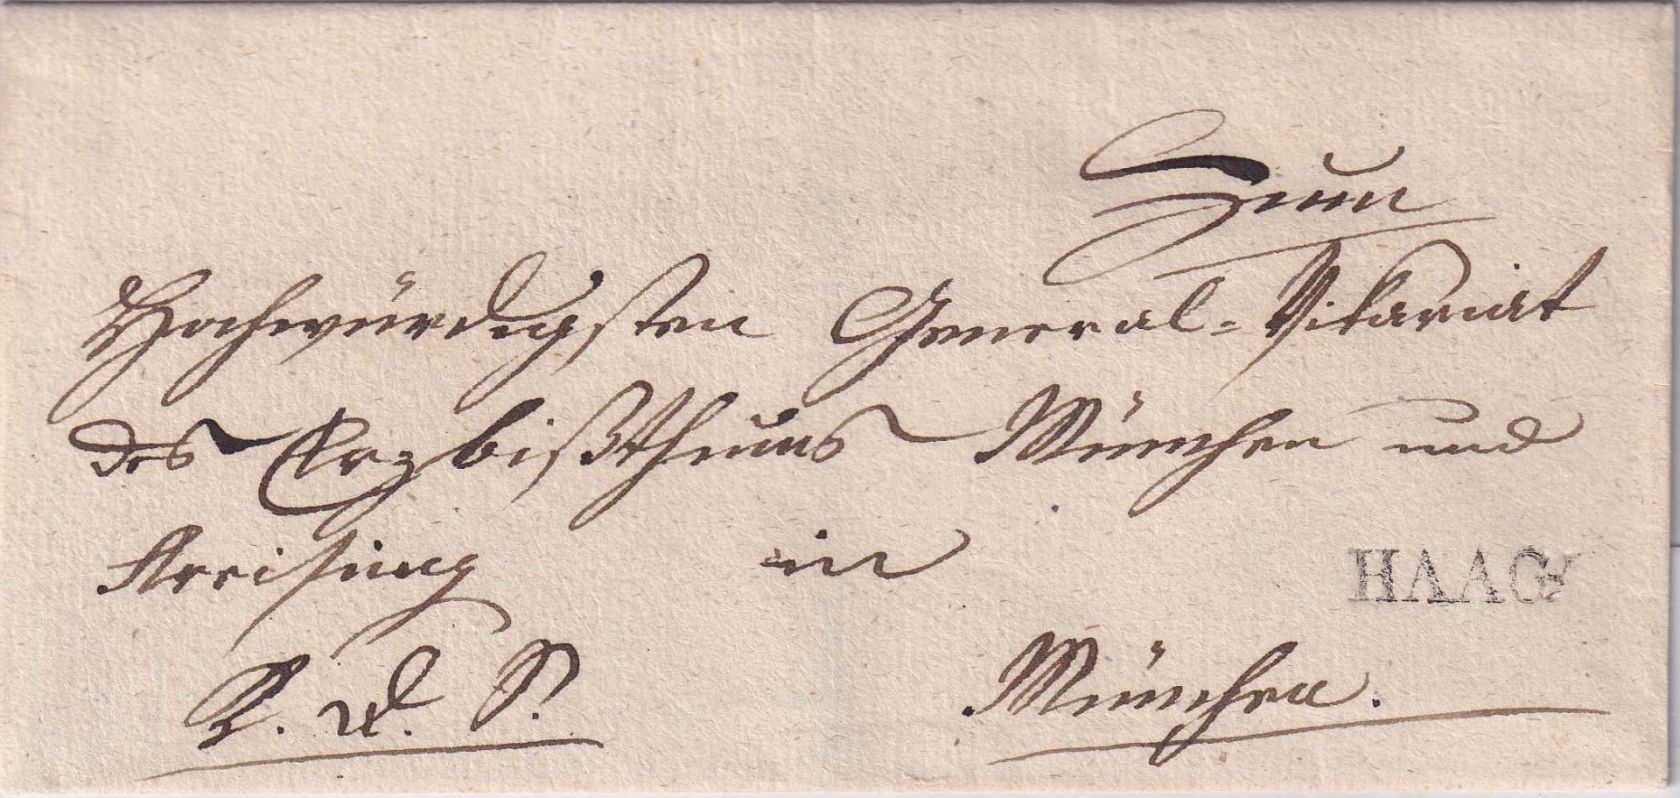 Zum
Hochwürdigsten General-Vikariat
des Erzbißthums München und
Freising in
HAAG
R. d. S.
München.